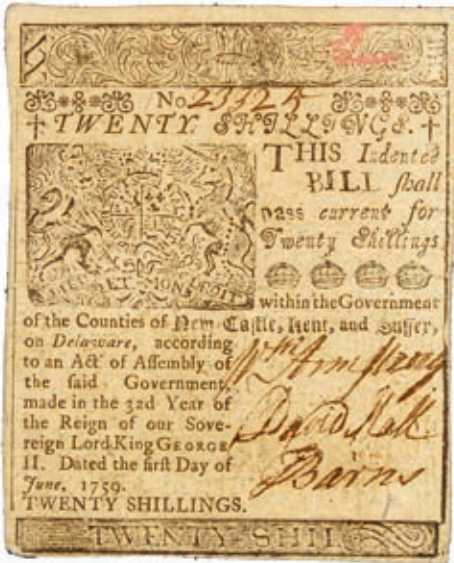 No 23325
TWENTY SHILLINGS.
THIS Indented
BILL shall
pass current for
Twenty Shillings
within the Government
of the Counties of New-Castle, Kent, and Sussex,
on Delaware, according
to an Act of Assembly of
the said Government,
made in the 32d Year of
the Reign of our Sove-
reign Lord King GEORGE
II. Dated the first Day of
June, 1759.
TWENTY SHILLINGS.
Wm Armstrong
David Hall
J Barns
TWENTY-SHIL